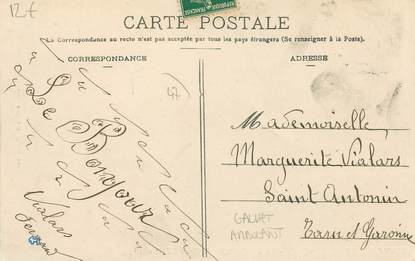 12€
CARTE POSTALE
La Correspondance au recto n'est pas acceptée par tous les pays étrangers (Se renseigner à la Poste).
CORRESPONDANCE
ADRESSE
47
Le Bonjour
Vialars
Fernand
Mademoiselle
Marguerite Vialars
Saint Antonin
GACHET
AMBULANT
Tarn et Garonne